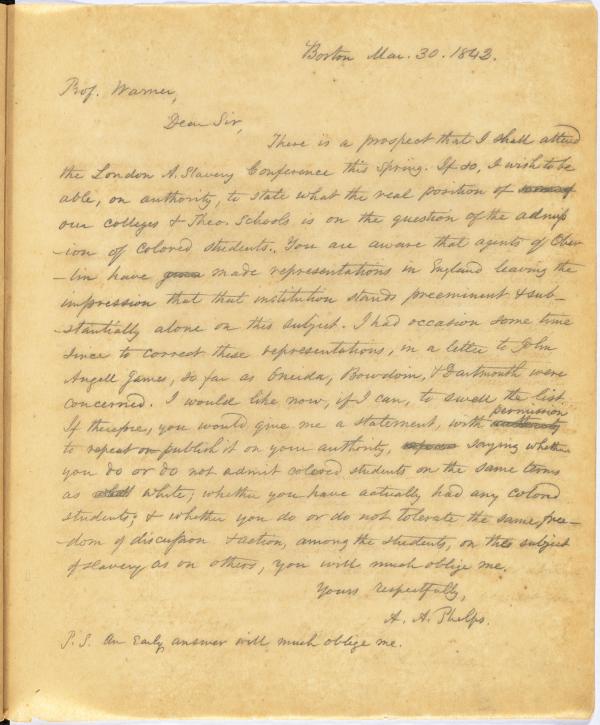 Boston Mar. 30. 1843.
Prof. Warner,
Dear Sir,
There is a prospect that I shall attend
the London A. Slavery Conference this Spring. If so, I wish to be
able, on authority, to state what the real position of
our colleges & Theo. Schools is on the question of the admiss
-ion of colored students. You are aware that agents of Ober
-lin have made representations in England leaving the
impression that that institution stands preeminent & sub-
-stantially alone on this subject. I had occasion some time
since to correct these representations, in a letter to John
Angell James, so far as Oneida, Bowdoin, & Dartmouth were
concerned. I would like now, if I can, to swell the list.
permission
If therefore, you would give me a statement, with authority
to repeat or publish it on your authority, saying whether
you do or do not admit colored students on the same terms
as white; whether you have actually had any colored
students; & whether you do or do not tolerate the same free-
-dom of discussion & action, among the students, on this subject
of slavery as on others, you will much oblige me.
Yours respectfully,
A. A. Phelps.
P.S. An early answer will much oblige me.